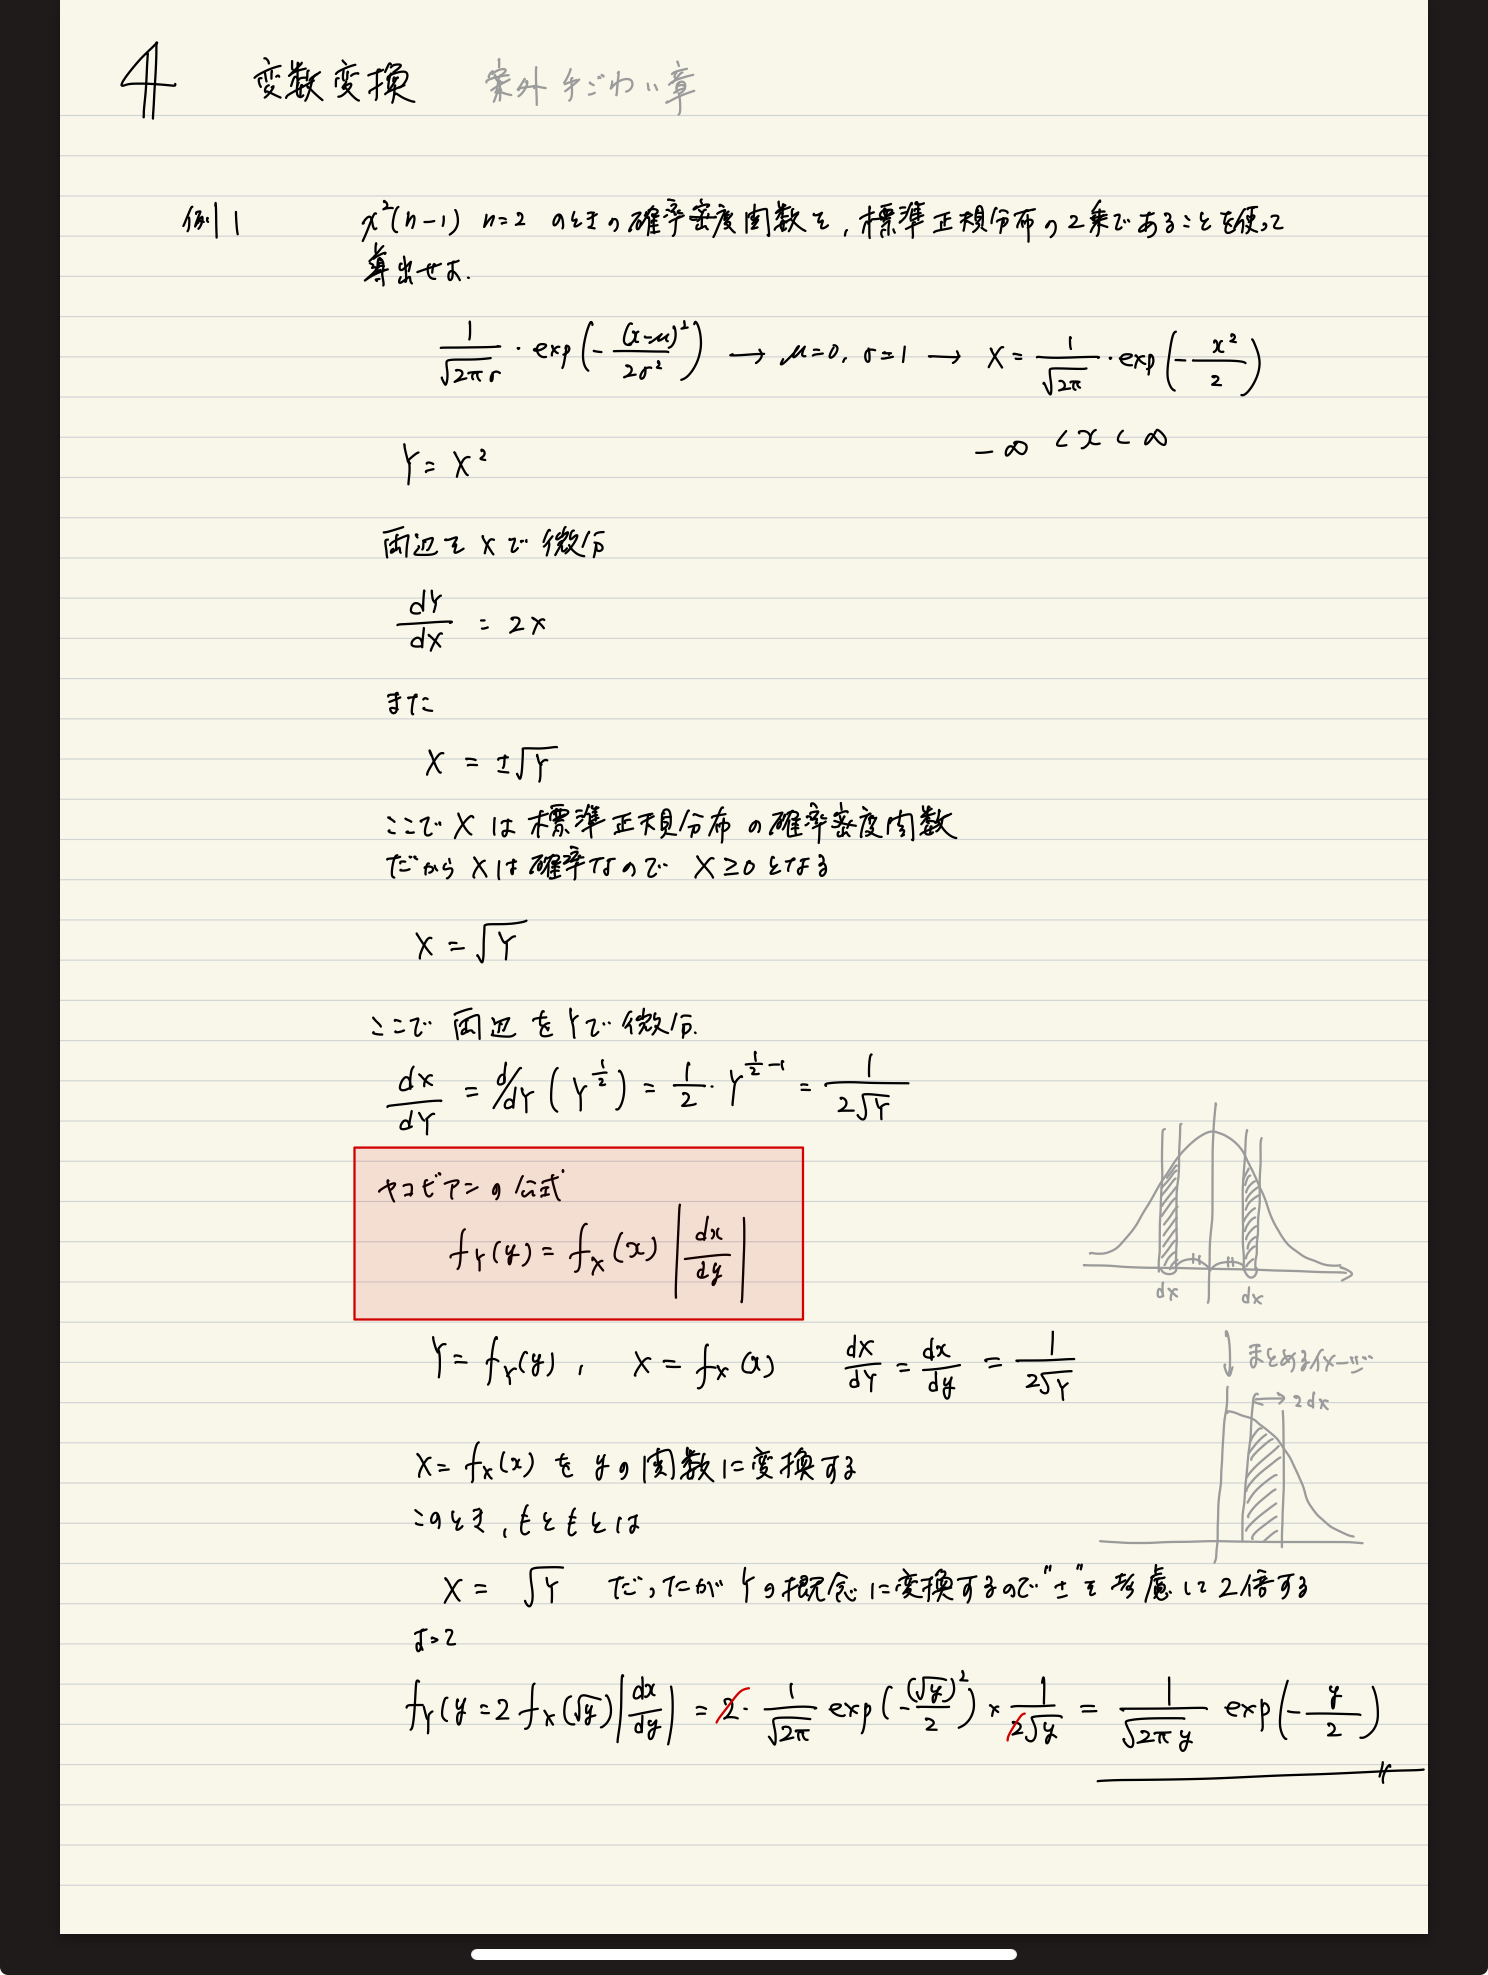 4 変数変換 案外手ごわい章
例1 χ²(n-1) n=2 のときの確率密度関数を, 標準正規分布の2乗であることを使って
導出せよ.
1/(√2π σ) · exp(-(x-μ)²/2σ²) → μ=0, σ=1 → X = 1/√2π · exp(-x²/2)
-∞ < x < ∞
Y = X²
両辺を X で 微分
dY/dX = 2X
また
X = ±√Y
ここで X は 標準正規分布 の確率密度関数
だから X は 確率なので X ≥ 0 となる
X = √Y
ここで 両辺 を Y で 微分.
dX/dY = d/dY (Y^(1/2)) = 1/2 · Y^(1/2 -1) = 1/(2√Y)
ヤコビアンの公式
f_Y(y) = f_X(x) |dx/dy|
dx dx
Y = f_Y(y), X = f_X(x) dX/dY = dx/dy = 1/(2√Y)
↓ まとめるイメージ
↔ 2dx
X = f_X(x) を y の関数に変換する
このとき, もともとは
X = √Y だったが Y の概念に変換するので "±" を考慮して2倍する
よって
f_Y(y = 2 f_X(√y) |dx/dy| = 2 · 1/√2π exp(-(√y)²/2) × 1/(2√y) = 1/√(2πy) exp(-y/2)